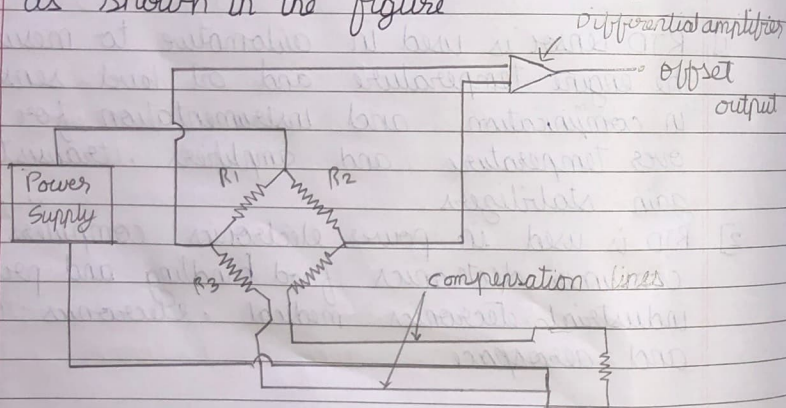 as shown in the figure
Differential amplifier
offset
output
R1
R2
Power
Supply
R3
compensation lines